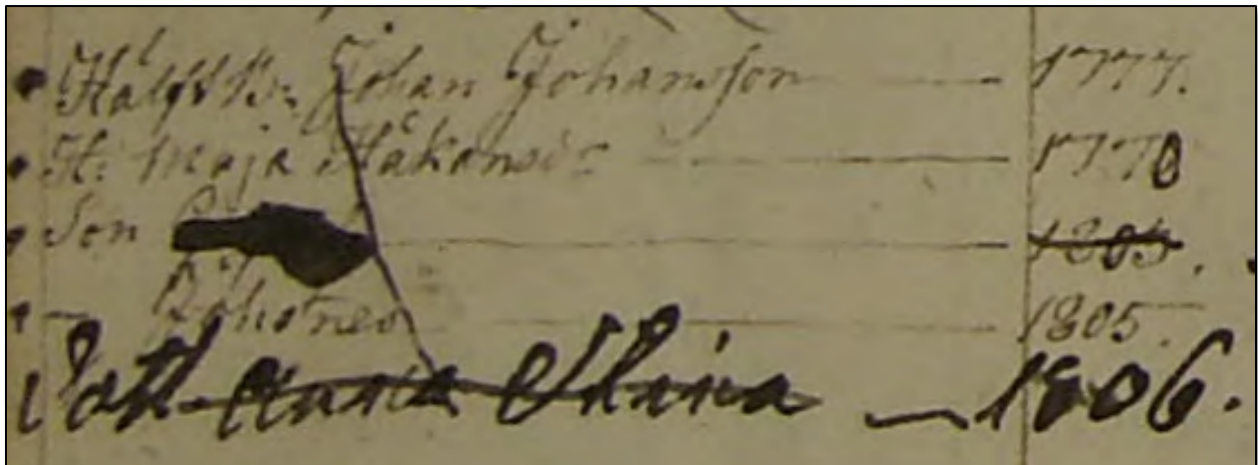 Hälft B: Johan Johansson 1777.
H: Maja Håkansdr 1770
Son 1803.
— Johannes 1805.
Dott Anna Stina — 1806.